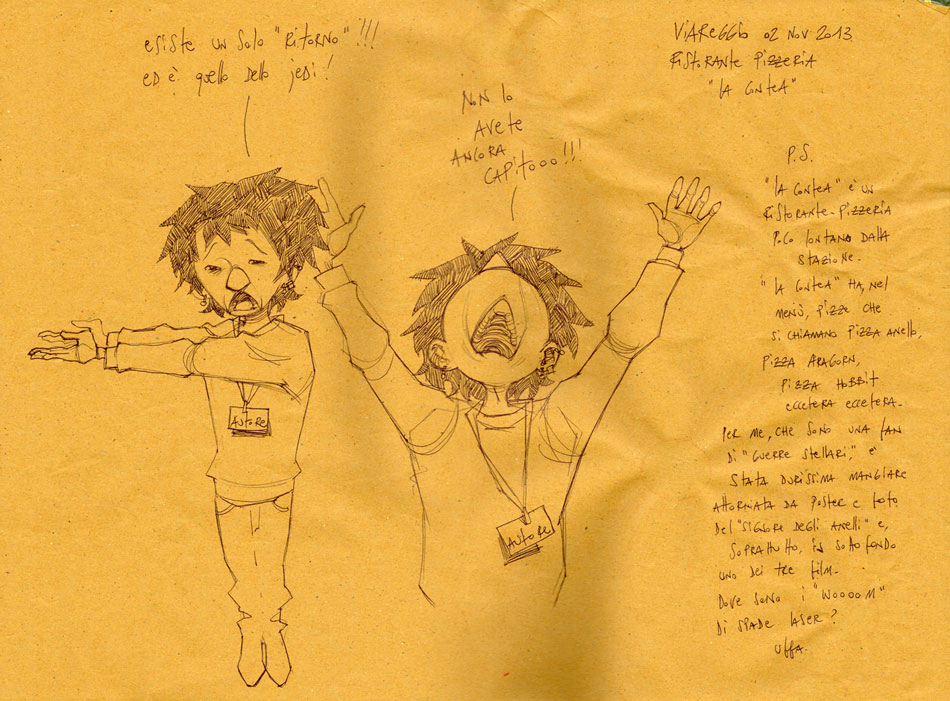 esiste un solo "Ritorno"!!!
ed è quello dello jedi!
Non lo
avete
ancora
capitooo!!!
Autore
Autore
Viareggio 02 Nov 2013
Ristorante Pizzeria
"La Contea"
P.S.
"La Contea" è un
Ristorante-Pizzeria
poco lontano dalla
stazione.
"La Contea" ha, nel
menù, pizze che
si chiamano pizza anello,
pizza Aragorn,
pizza Hobbit
eccetera eccetera.
Per me, che sono una fan
di "Guerre Stellari," è
stata durissima mangiare
attorniata da poster e foto
del "Signore degli Anelli" e,
soprattutto, in sottofondo
uno dei tre film.
Dove sono i "woooom"
di spade laser?
Uffa.